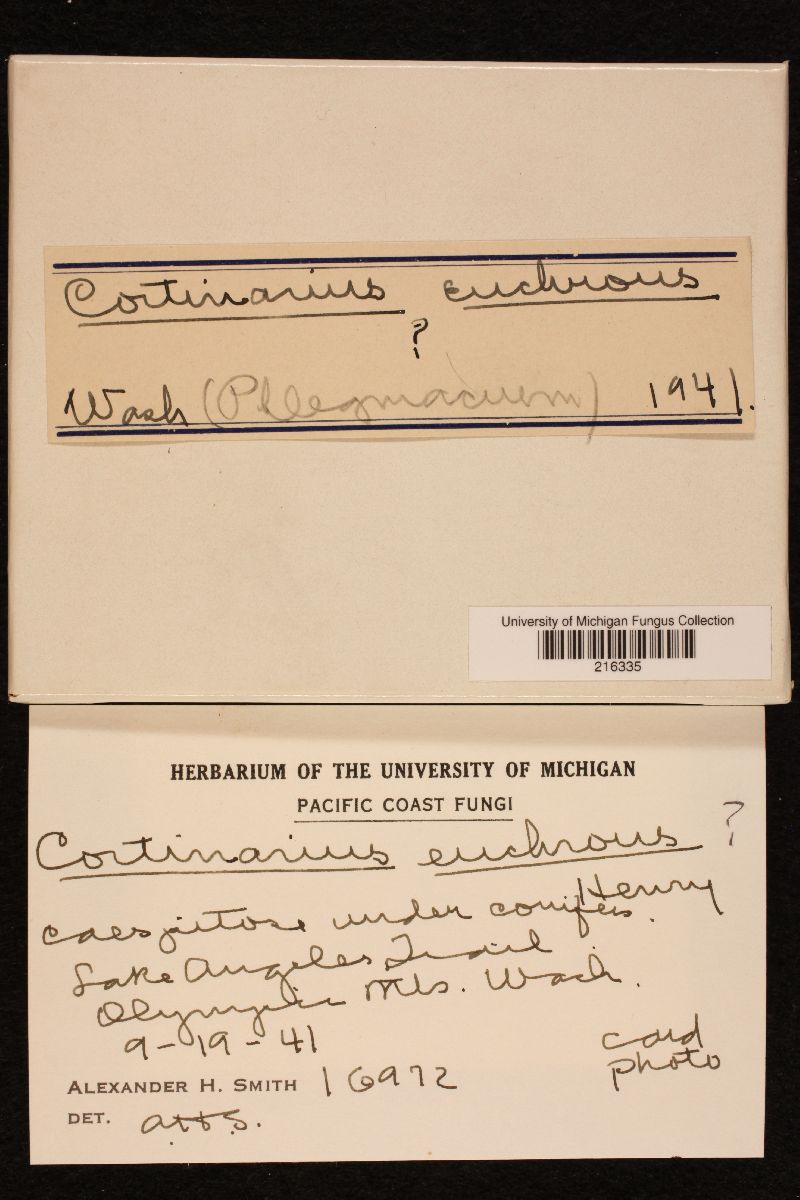 Cortinarius euchrous
?
Wash (Phlegmacium) 1941.
University of Michigan Fungus Collection
216335
HERBARIUM OF THE UNIVERSITY OF MICHIGAN
PACIFIC COAST FUNGI
Cortinarius euchrous ?
Henry
caespitose under conifers.
Lake Angeles Trail
Olympic Mts. Wash.
9-19-41
card
photo
ALEXANDER H. SMITH 16972
DET. AHS.